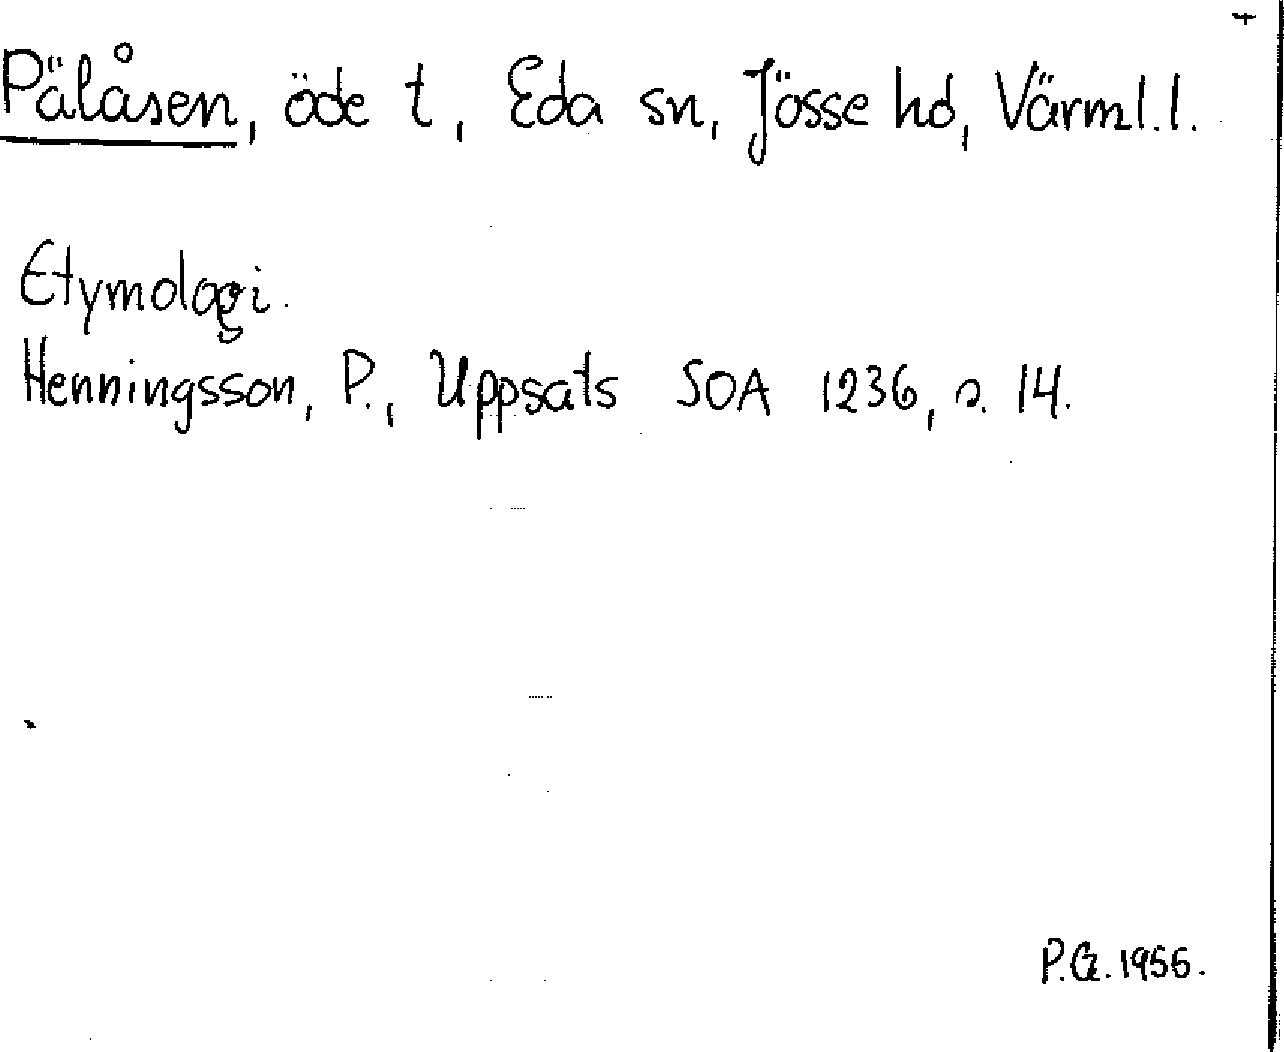 Pälåsen, öde t, Eda sn, Jösse hd, Värml.l.
Etymologi.
Henningsson, P., Uppsats SOA 1236, s. 14.
P.G. 1956.